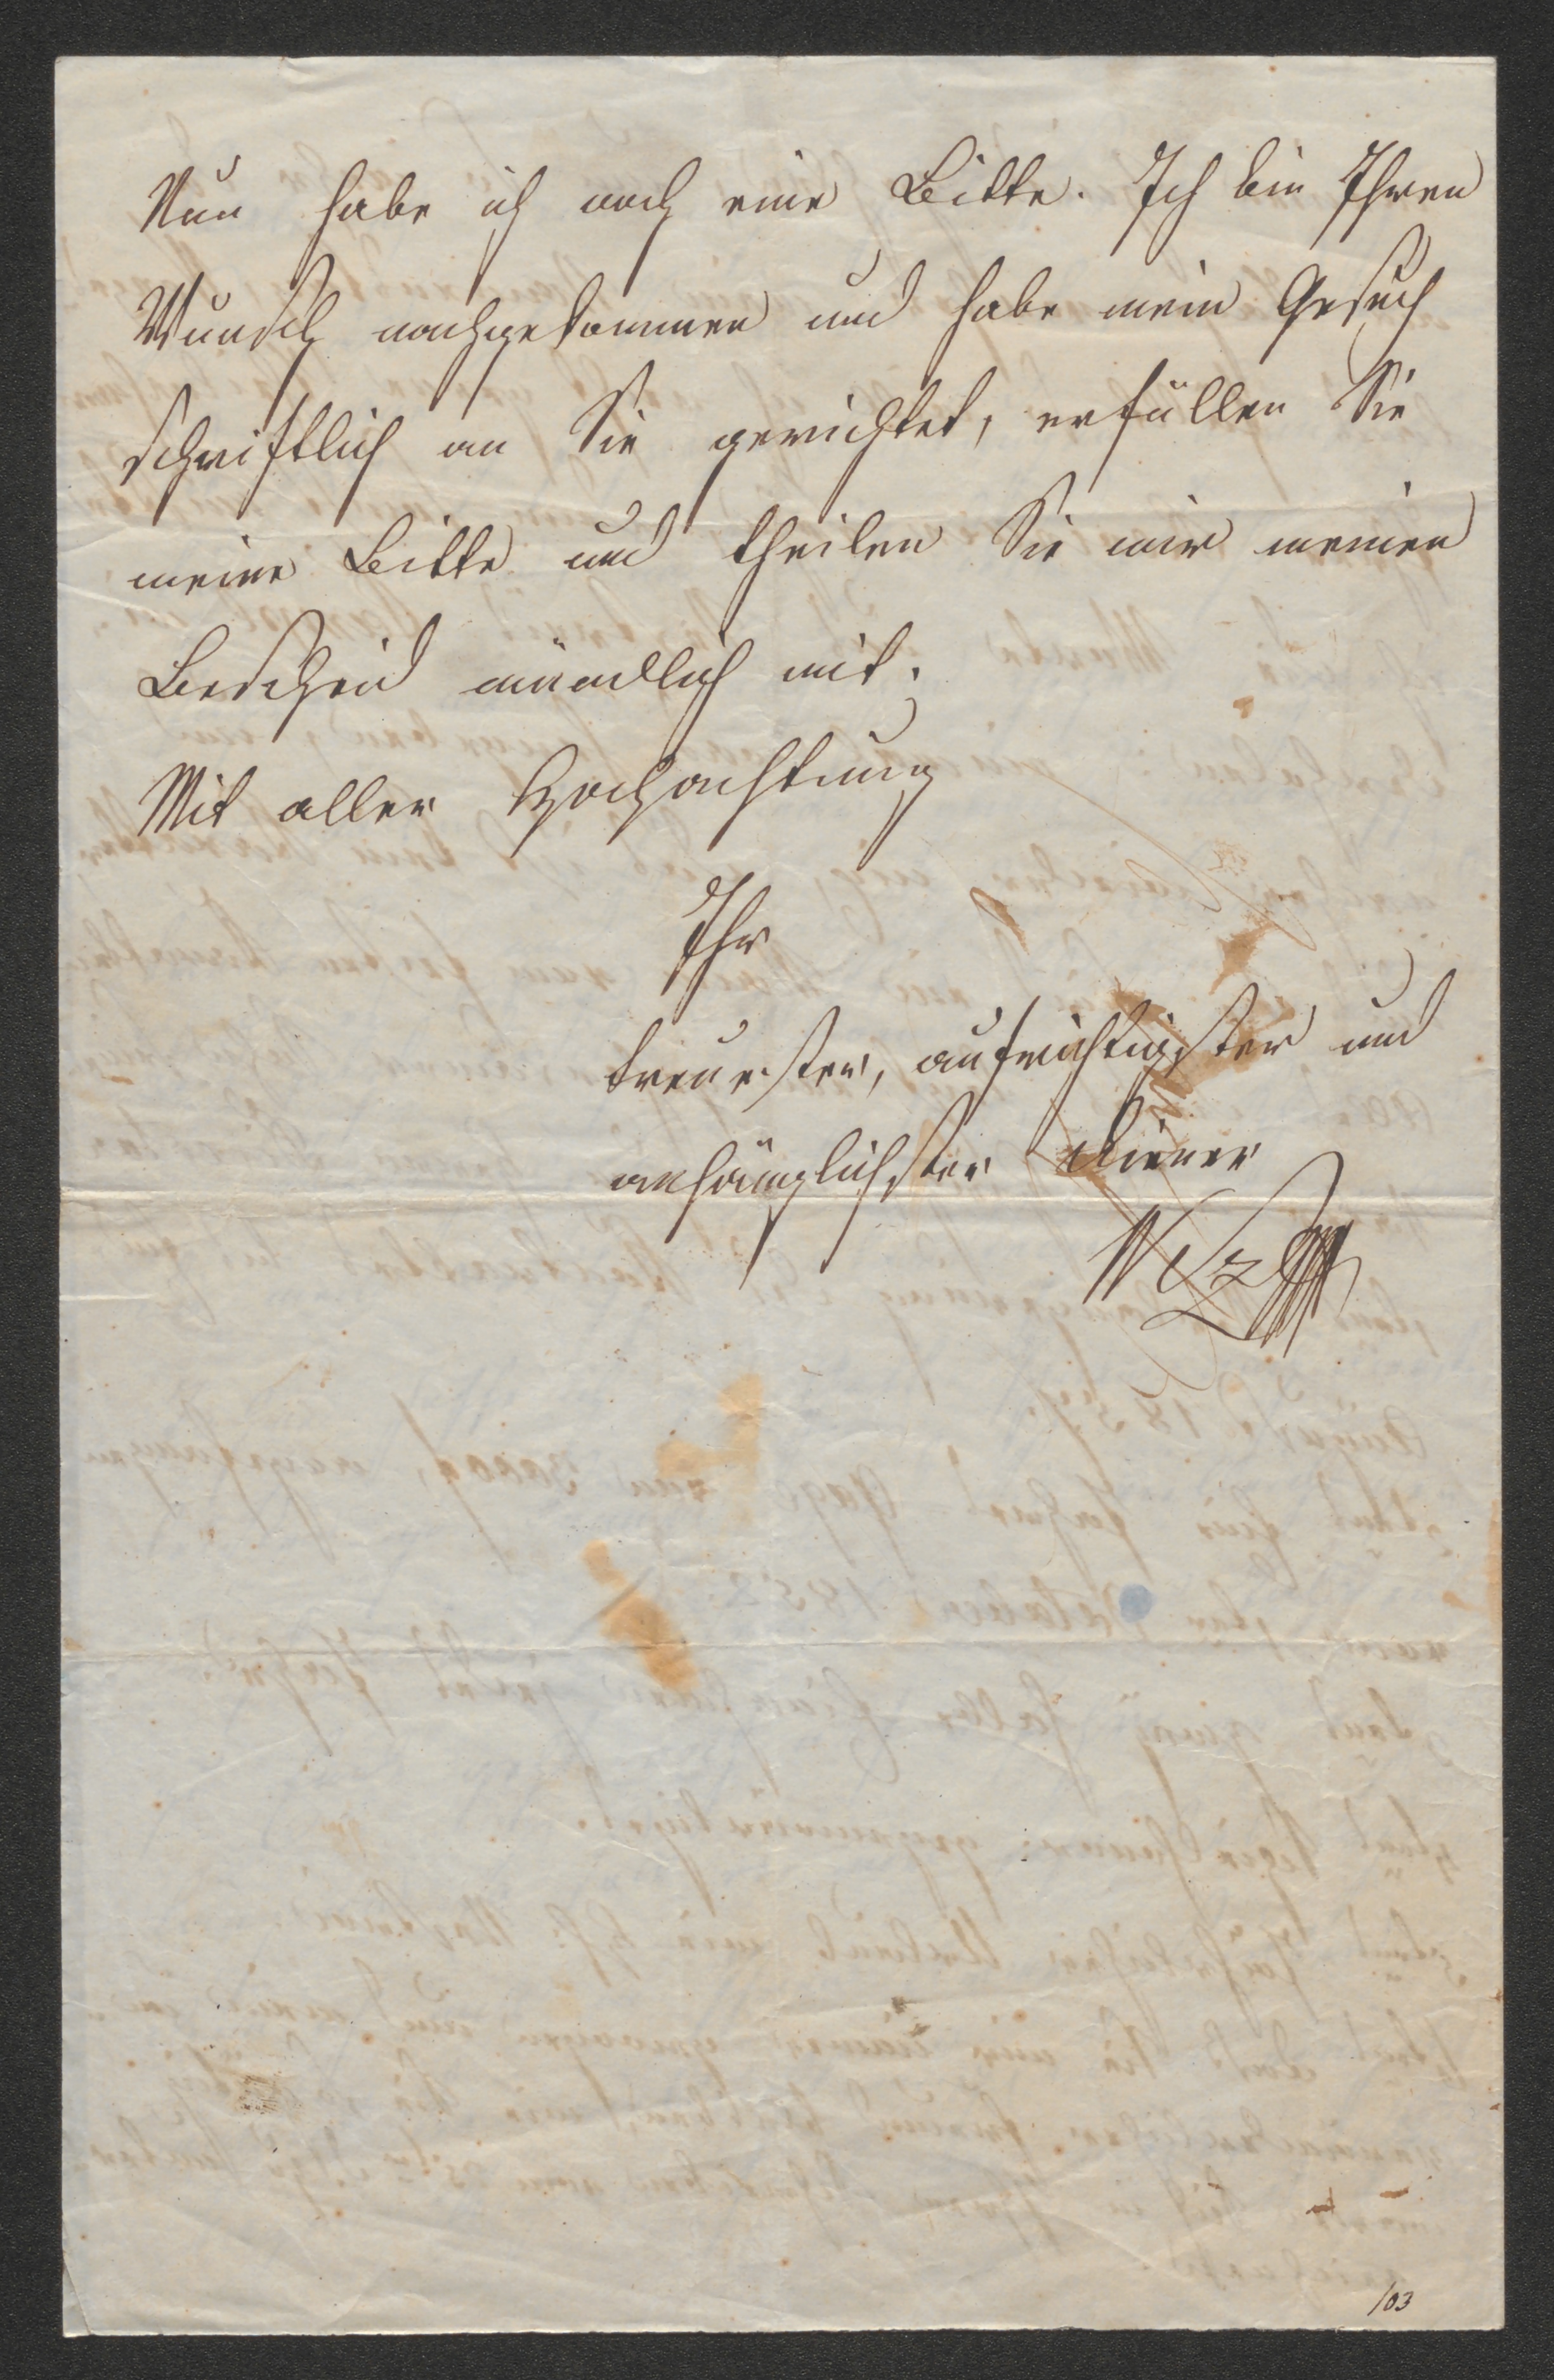 Nun habe ich noch eine Bitte. Ich bin Ihren
Wunsch nachgekommen und habe mein Gesuch
schriftlich an Sie gerichtet, erfüllen Sie
meine Bitte und theilen Sie mir meinen
Bescheid mündlich mit.
Mit aller Hochachtung
Ihr
treuester, aufrichtigster und
anhänglichster Diener
103